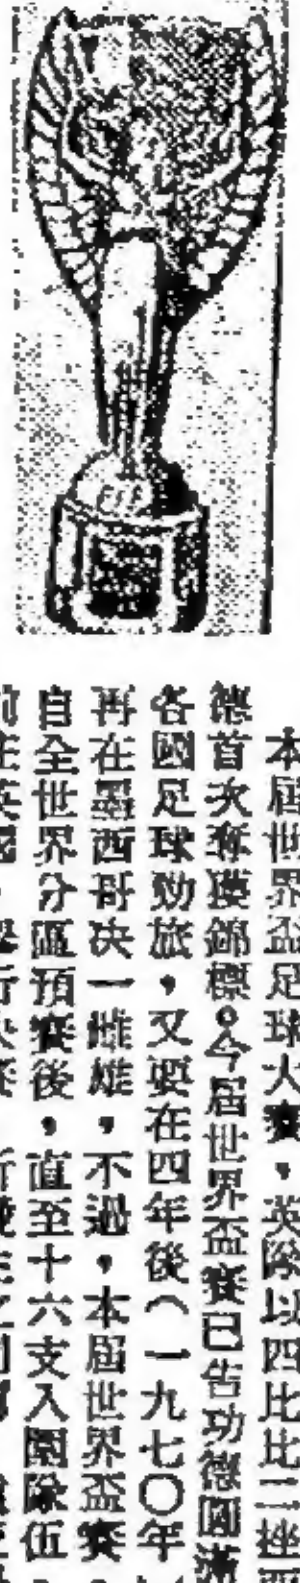 本屆世界盃足球大賽，英隊以四比二挫
德首次奪獲錦標。今屆世界盃賽已告功德圓滿
各國足球勁旅，又要在四年後（一九七〇年
再在墨西哥决一雌雄，不過，本屆世界盃賽，
自全世界分區預賽後，直至十六支入圍隊伍